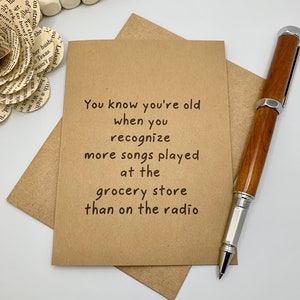 You know you're old
when you
recognize
more songs played
at the
grocery store
than on the radio